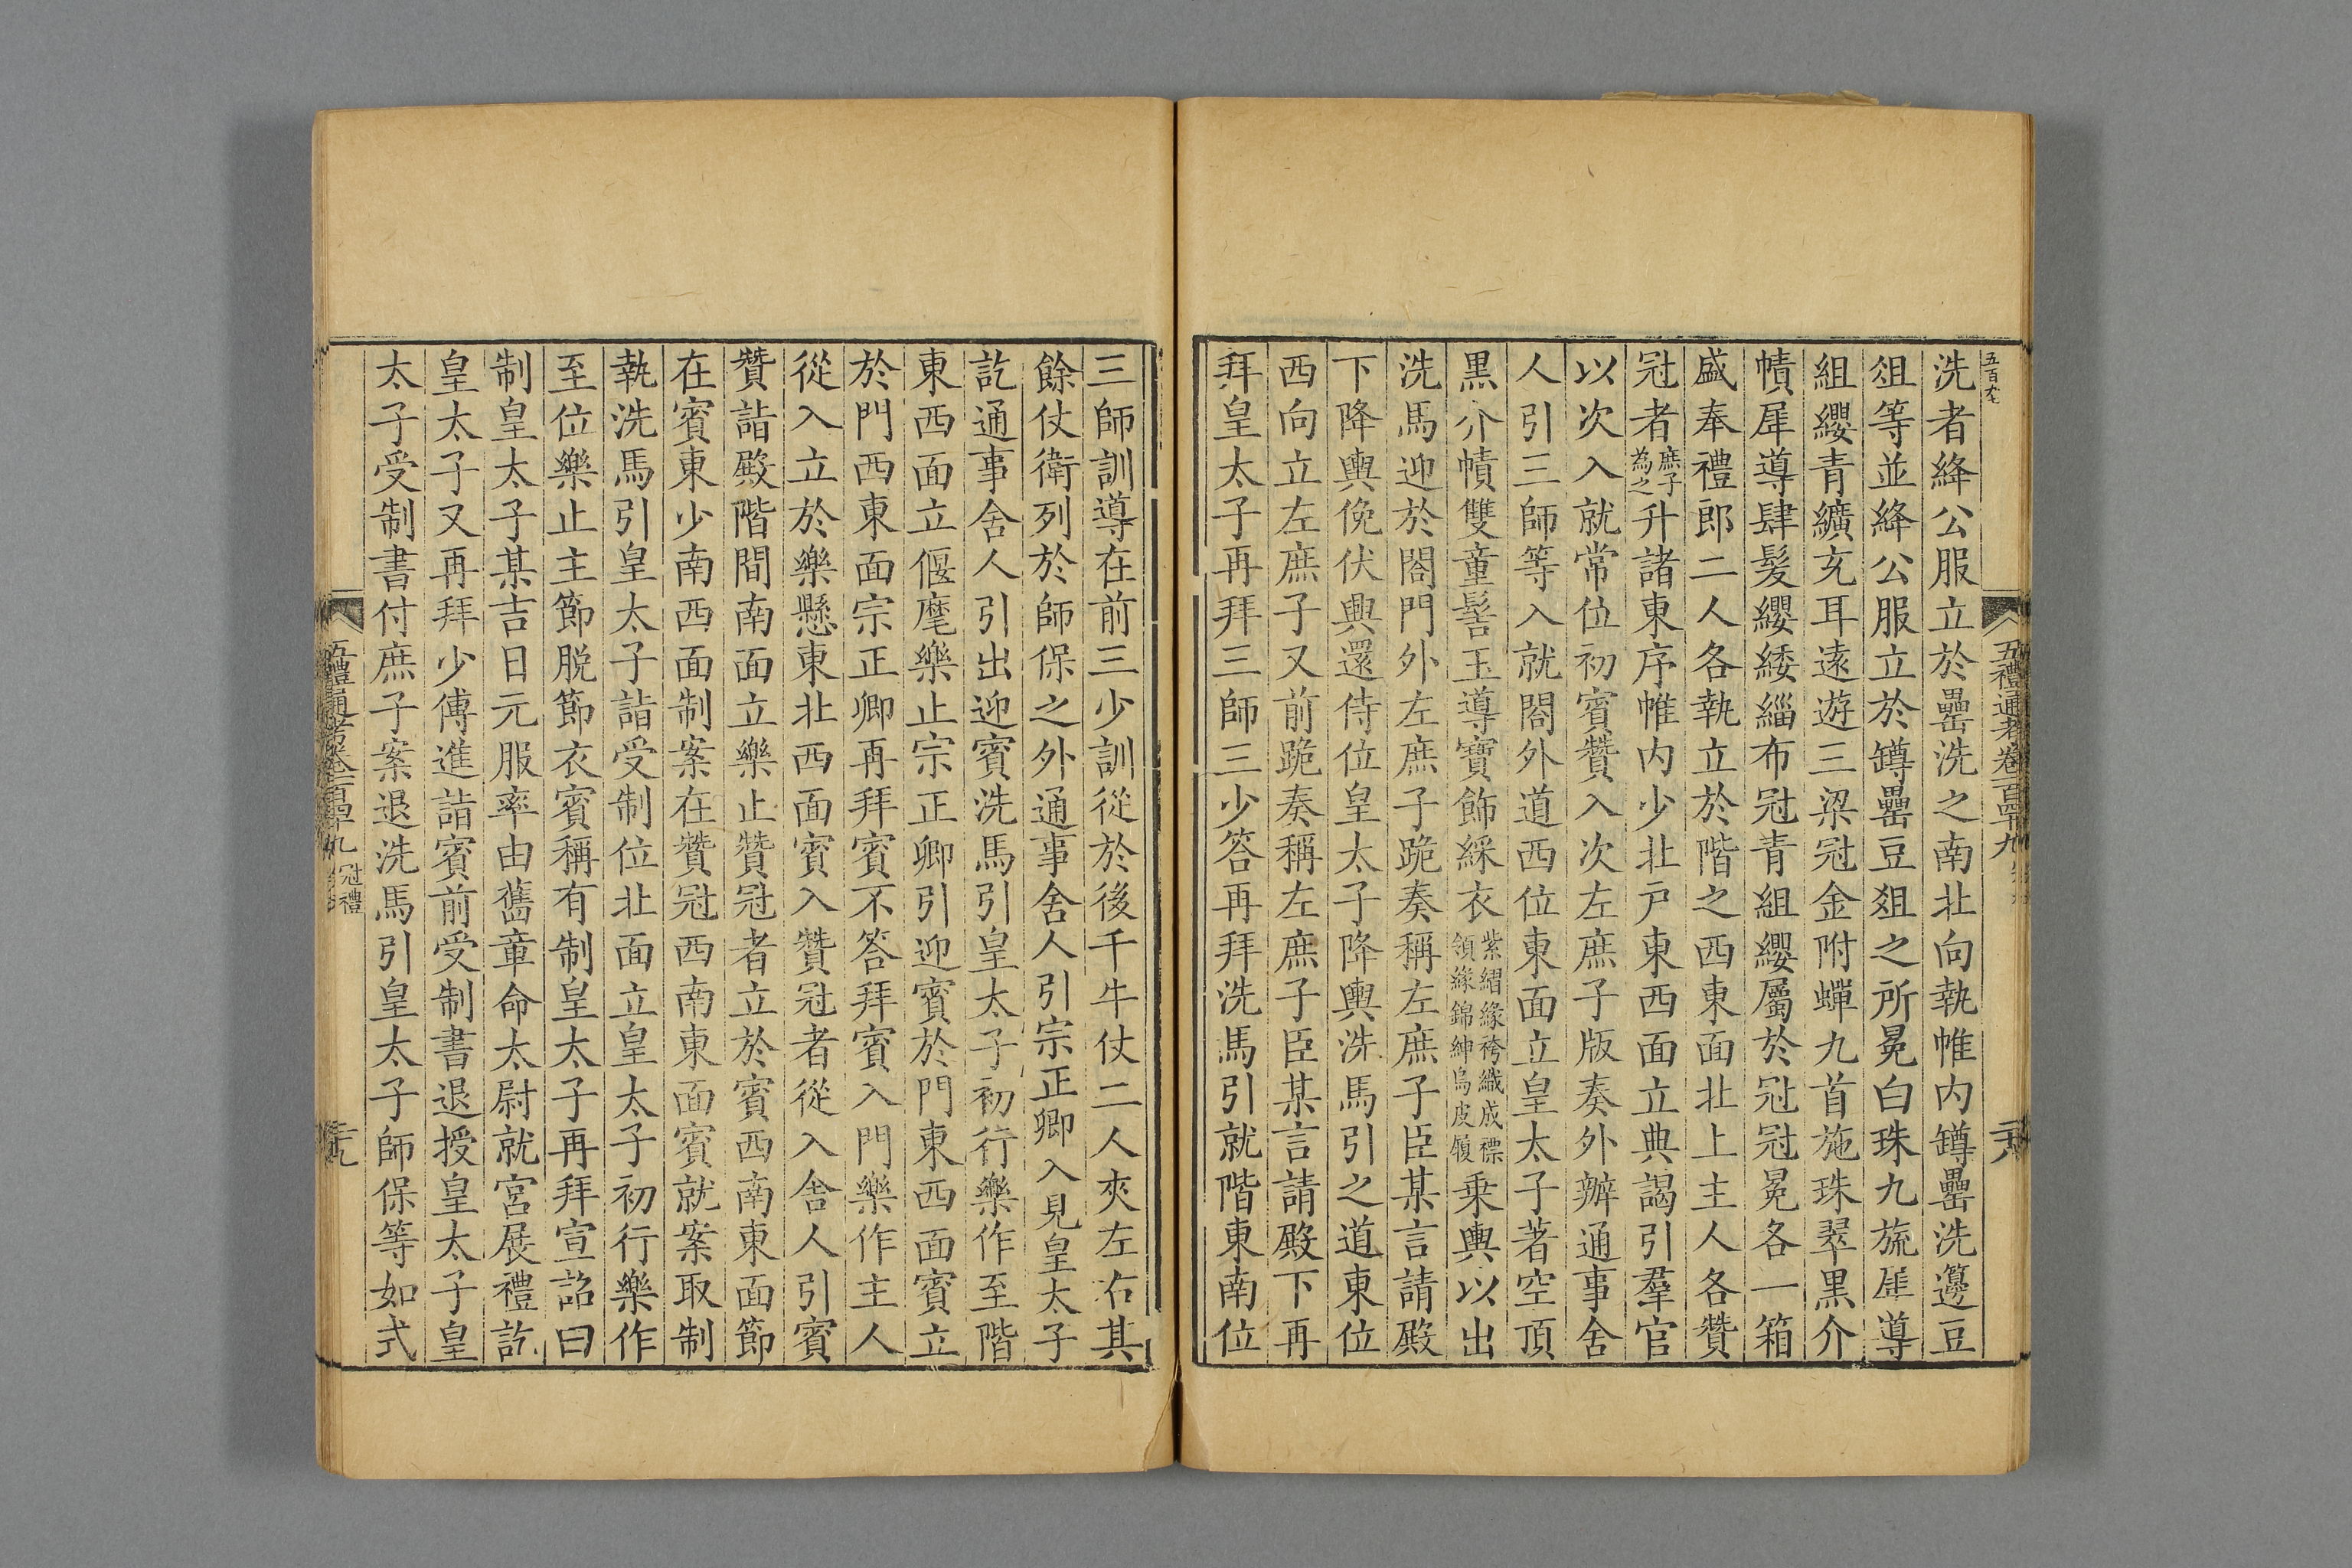 五禮通考卷一百四十九
洗者絳公服立於罍洗之南北向執帷内罇罍洗籩豆
俎等並絳公服立於罇罍豆俎之所冕白珠九旒犀導
組纓青纊充耳遠遊三梁冠金附蟬九首施珠翠黑介
幘犀導肆髮纓緌緇布冠青組纓屬於冠冠冕各一箱
盛奉禮郎二人各執立於階之西東面北上主人各贊
冠者庶子為之升諸東序帷内少北戸東西面立典謁引羣官
以次入就常位初賓贊入次左庶子版奏外辦通事舍
人引三師等入就閤外道西位東面立皇太子著空頂
黑介幘雙童髻玉導寶飾綵衣紫縚緣袴織成褾領緣錦紳烏皮履乗輿以出
洗馬迎於閤門外左庶子跪奏稱左庶子臣某言請殿
下降輿俛伏興還侍位皇太子降輿洗馬引之道東位
西向立左庶子又前跪奏稱左庶子臣某言請殿下再
拜皇太子再拜三師三少答再拜洗馬引就階東南位
三師訓導在前三少訓從於後千牛仗二人夾左右其
餘仗衛列於師保之外通事舍人引宗正卿入見皇太子
訖通事舍人引出迎賓洗馬引皇太子初行樂作至階
東西面立偃麾樂止宗正卿引迎賓於門東西面賓立
於門西東面宗正卿再拜賓不答拜賓入門樂作主人
從入立於樂懸東北西面賓入贊冠者從入舍人引賓
贊詣殿階間南面立樂止贊冠者立於賓西南東面節
在賓東少南西面制案在贊冠西南東面賓就案取制
執洗馬引皇太子詣受制位北面立皇太子初行樂作
至位樂止主節脱節衣賓稱有制皇太子再拜宣詔曰
制皇太子某吉日元服率由舊章命太尉就宮展禮訖
皇太子又再拜少傅進詣賓前受制書退授皇太子皇
太子受制書付庶子案退洗馬引皇太子師保等如式
冠禮